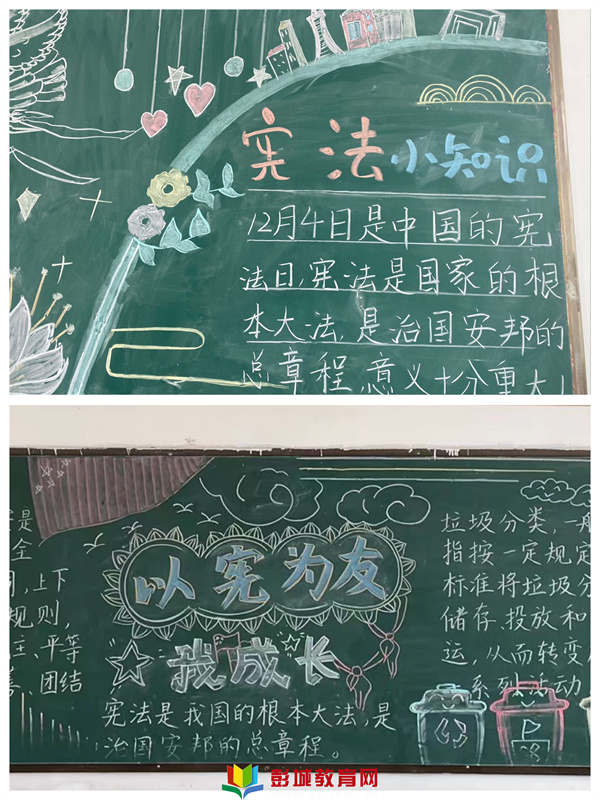 宪法小知识
12月4日是中国的宪
法日,宪法是国家的根
本大法,是治国安邦的
总章程,意义十分重大
是
全
上下
规则,
主、平等
善、团结
以宪为友
我成长
宪法是我国的根本大法,是
治国安邦的总章程。
垃圾分类,一般
指按一定规定
标准将垃圾分
储存、投放和
运,从而转变
系列活动
彭城教育网